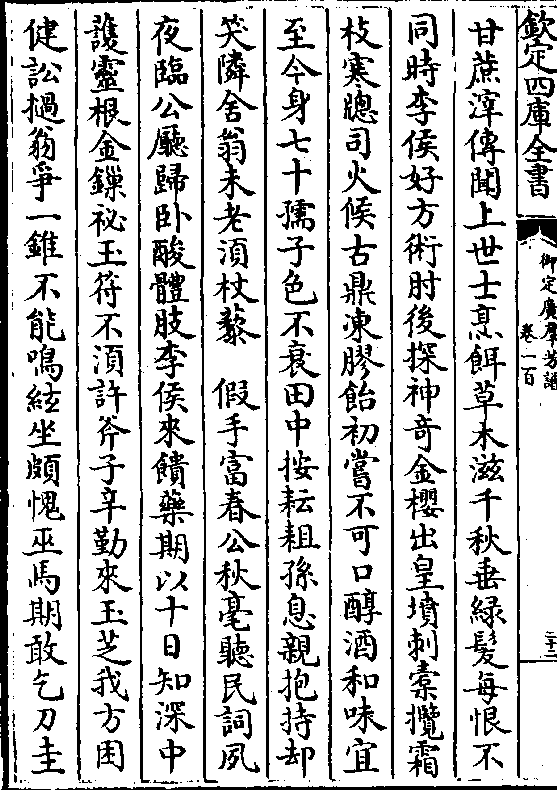 欽定四庫全書
御定廣羣芳譜
卷一百
三十二
甘蔗滓傳聞上世士烹餌草木滋千秋垂綠髪每恨不
同時李侯好方術肘後探神奇金櫻出皇墳刺橐攬霜
枝寒牕司火候古鼎凍膠飴初嘗不可口醇酒和味宜
至今身七十孺子色不衰田中按耘耝孫息親抱持却
笑隣舍翁未老湏杖藜　假手富春公秋毫聽民詞夙
夜臨公廳歸卧酸體肢李侯來饋藥期以十日知深中
護靈根金鏁祕玉符不湏許斧子辛勤來玉芝我方困
健訟撾翁爭一錐不能鳴絃坐頗愧巫馬期敢乞刀圭